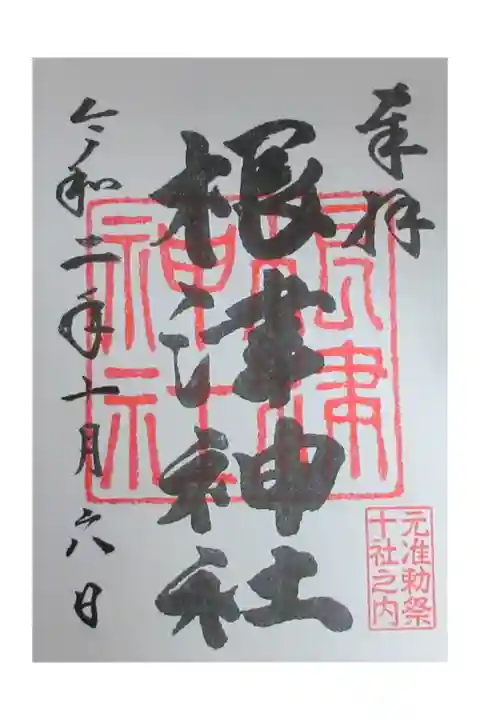 奉拝
根津神社
令和二年十月六日
根津
神社
元准勅祭
十社之内